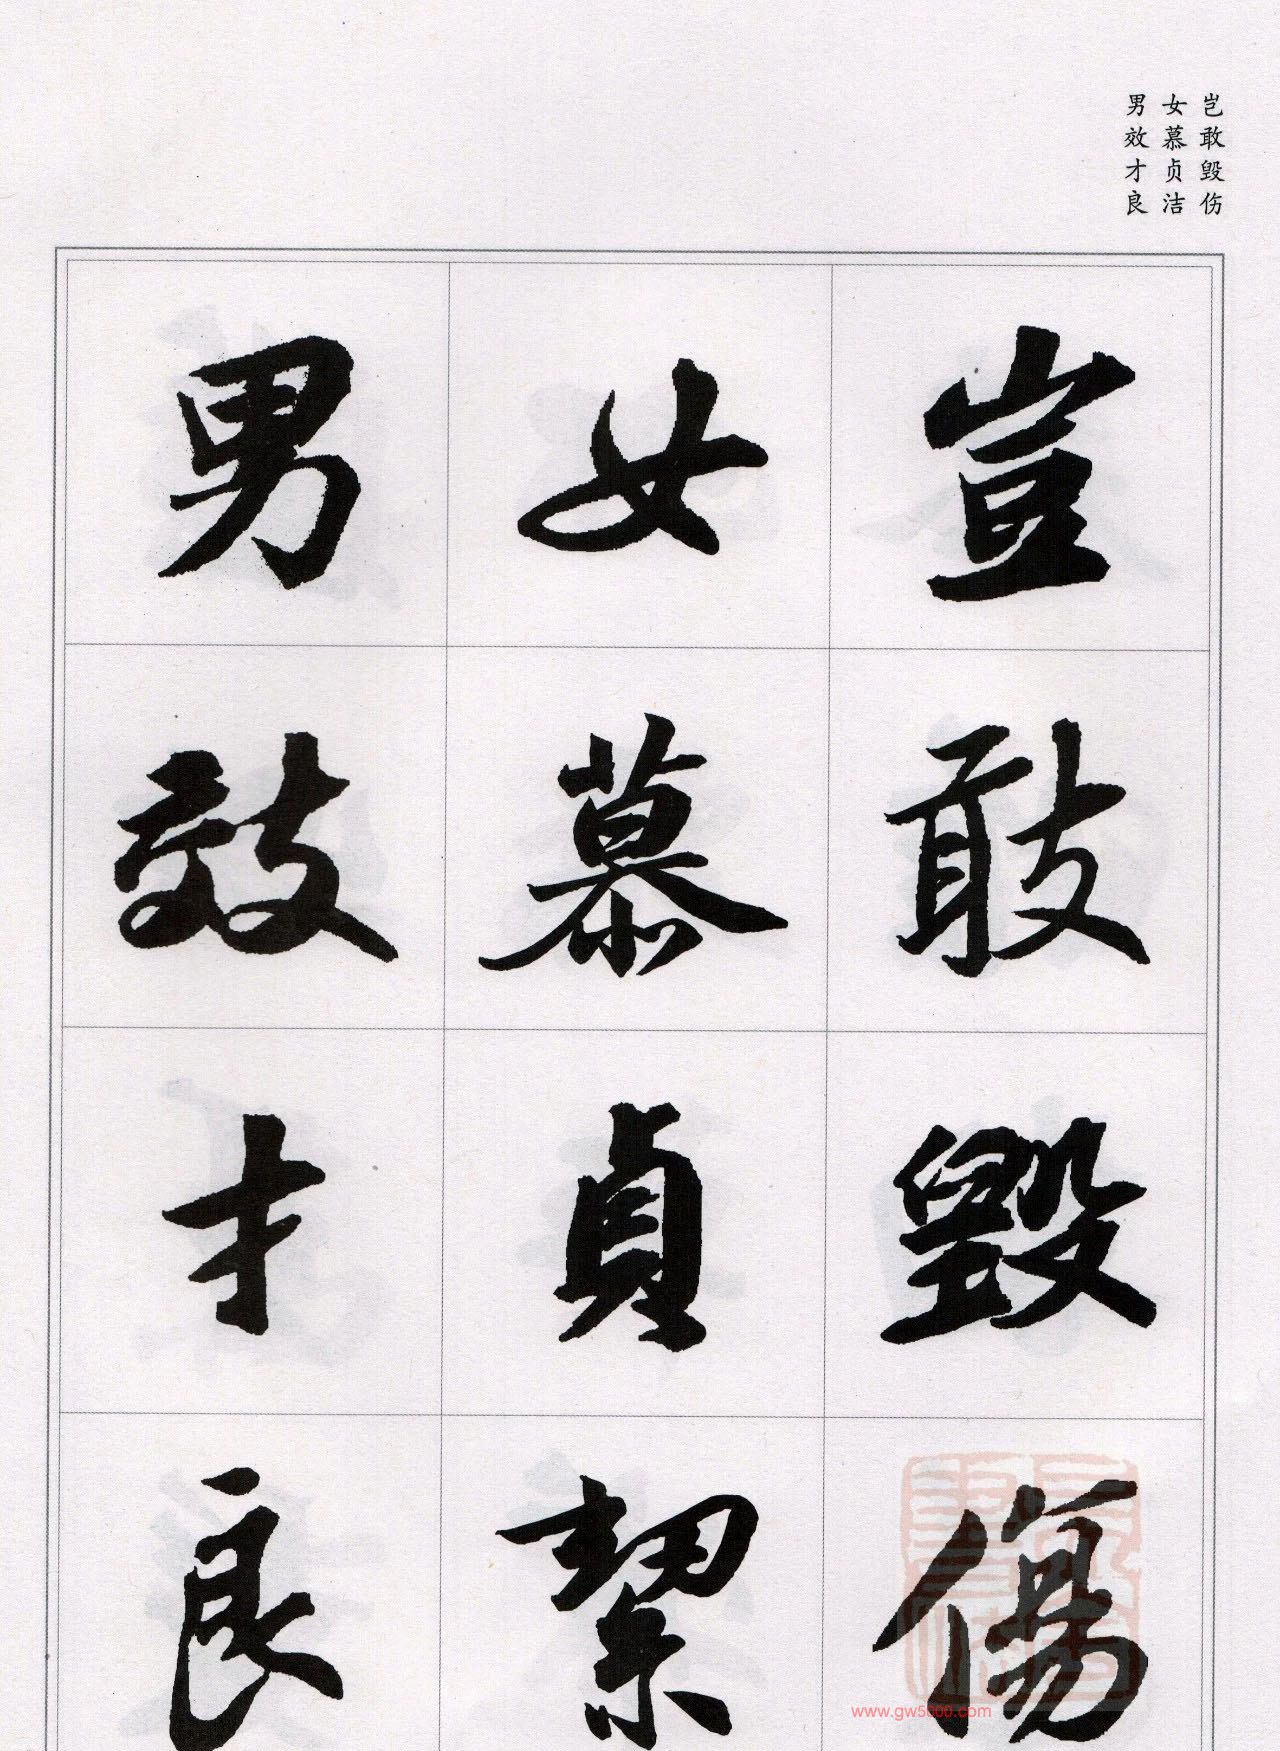 岂敢毁伤
女慕贞洁
男效才良
豈敢毀傷
女慕貞絜
男效才良
www.gw5600.com